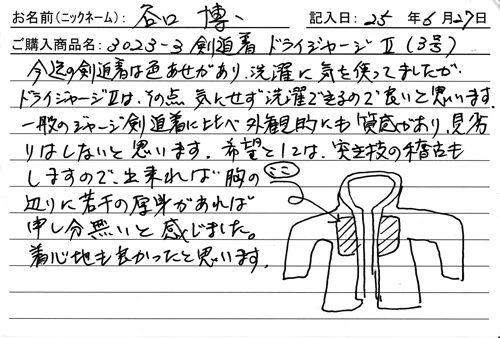 お名前(ニックネーム): 谷口 博 記入日: 25 年 6 月 27 日
ご購入商品名: 3023-3 剣道着 ドライジャージⅡ(3号)
今迄の剣道着は色あせがあり、洗濯に気を使ってましたが、
ドライジャージⅡは、その点気にせず洗濯できるので良いと思います。
一般のジャージ剣道着に比べ外観的にも質感があり、見劣
りはしないと思います。希望としては、突き技の稽古も
しますので、出来れば胸の
ここ
辺りに若干の厚身があれば
申し分無いと感じました。
着心地も良かったと思います。